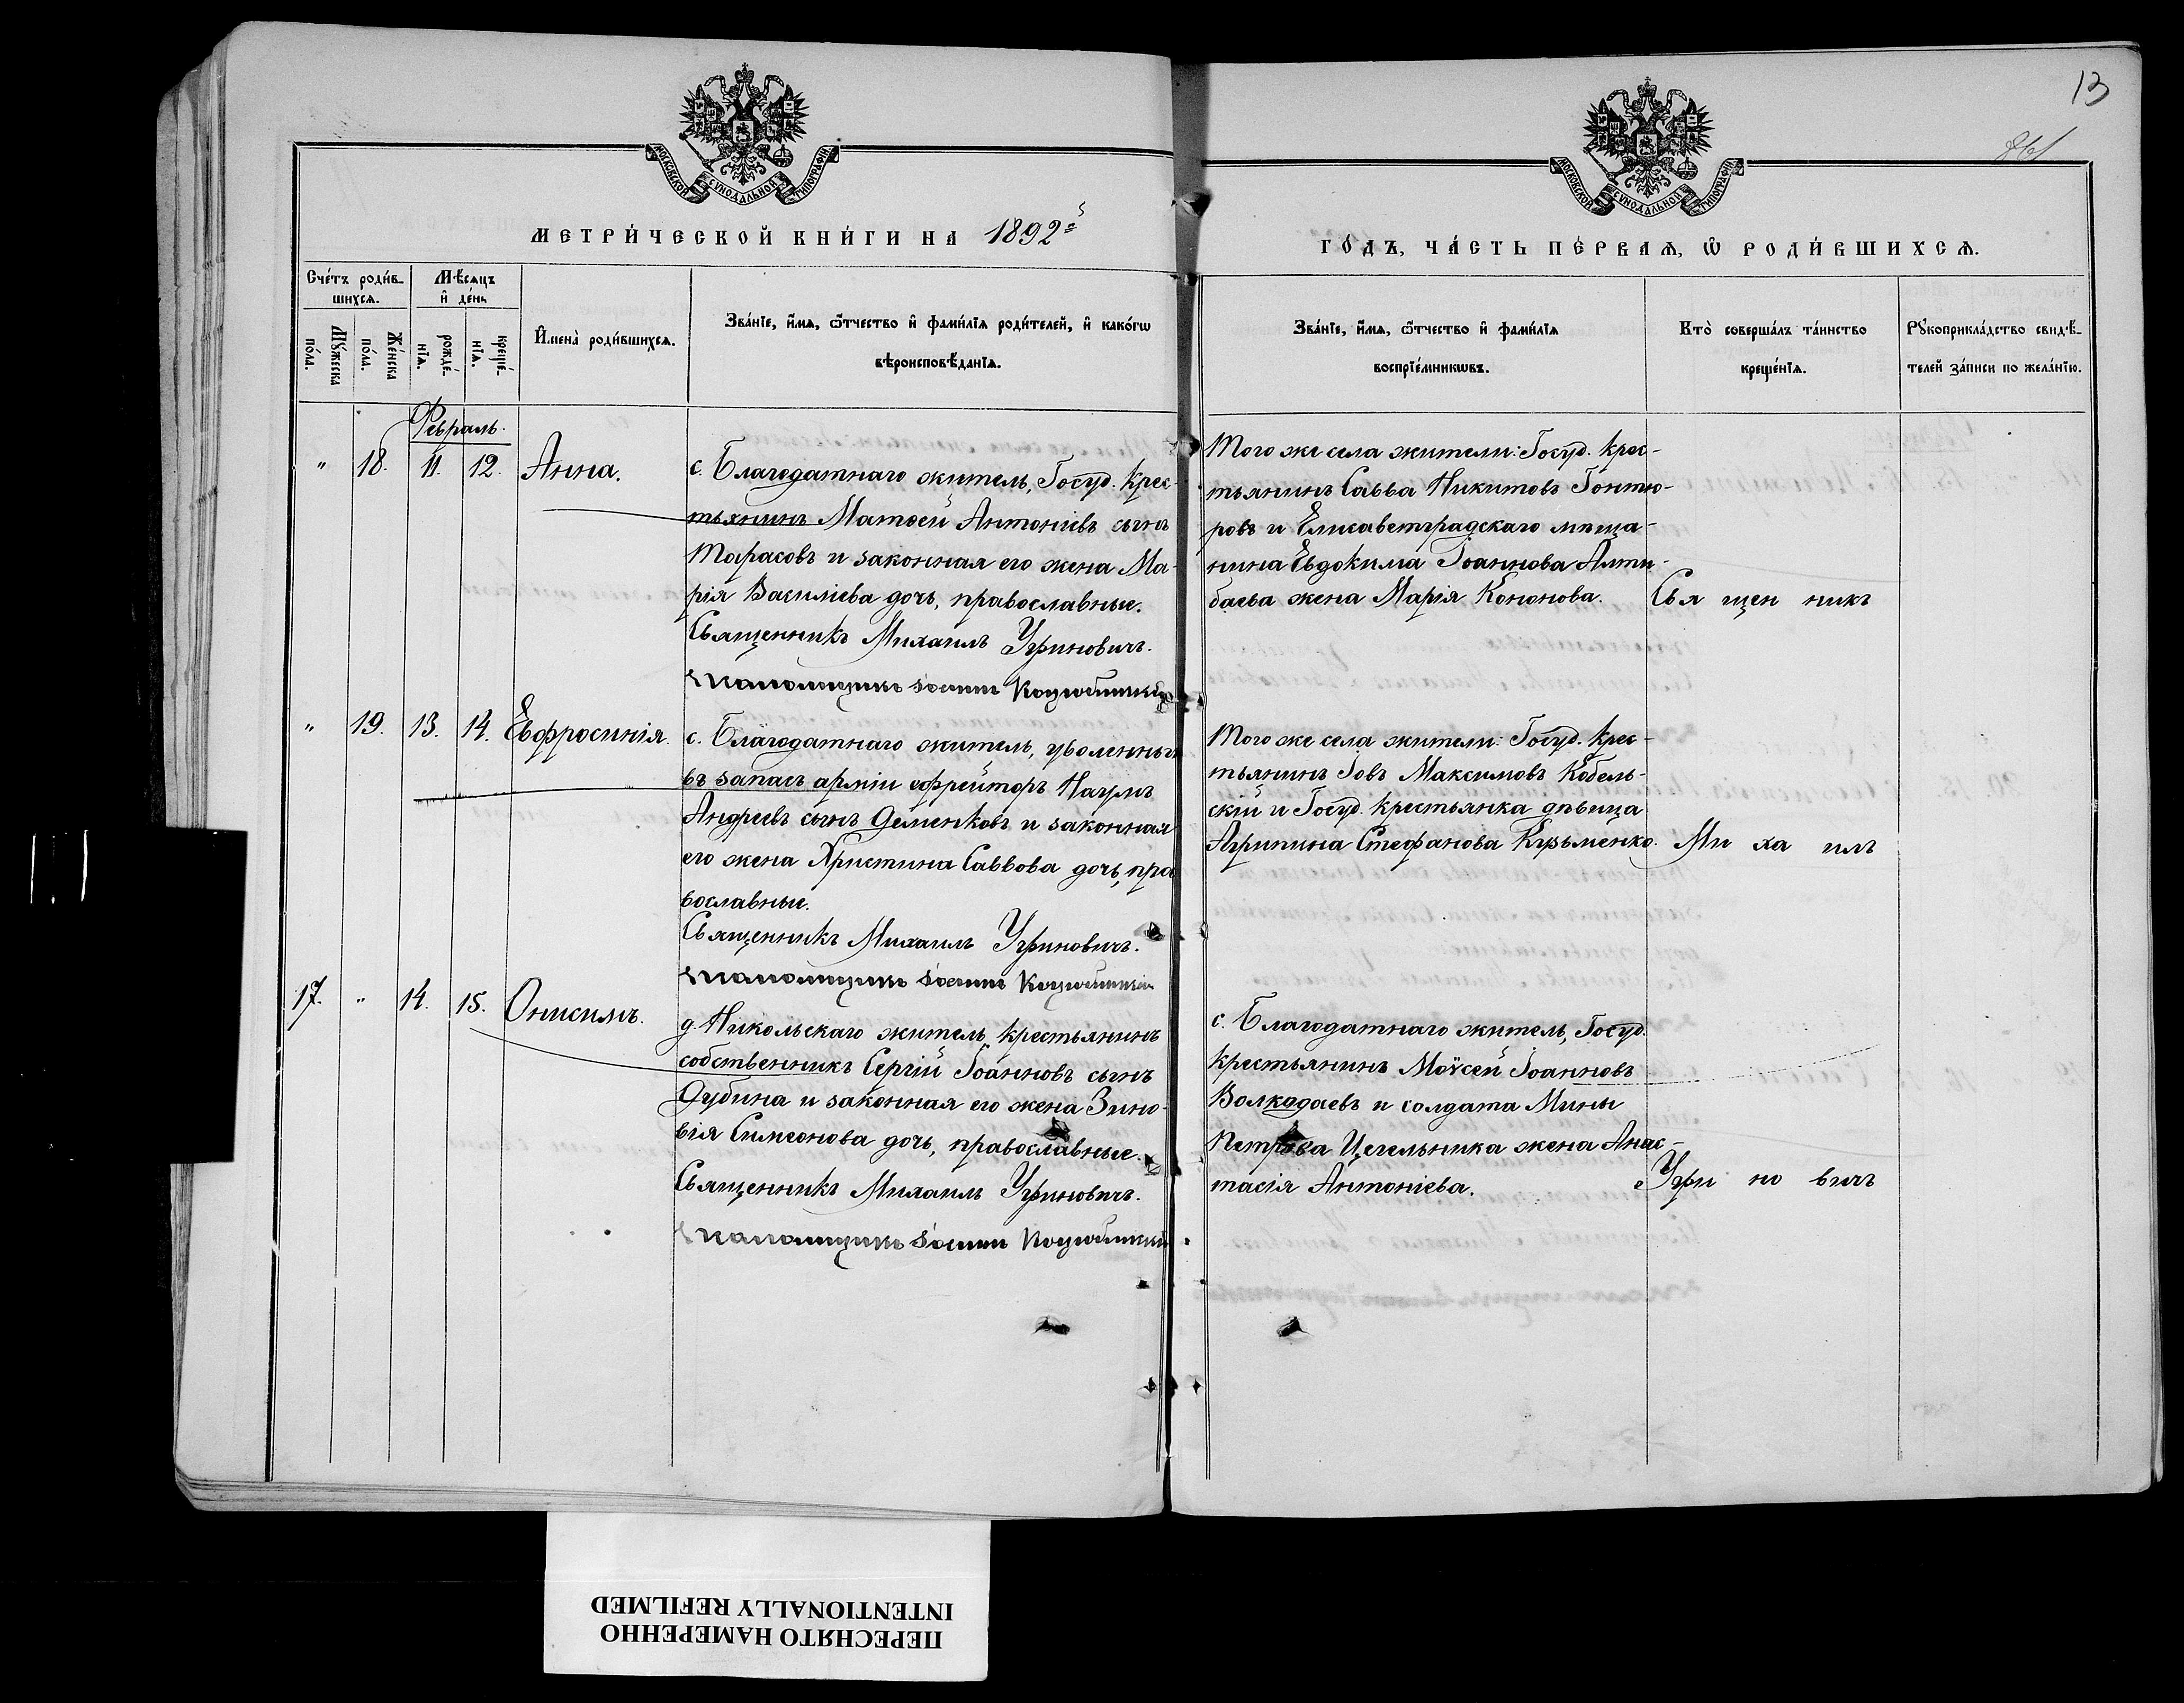 13
МОСКОВСКОЙ СУНОДАЛЬНОЙ ТИПОГРАФІИ
МОСКОВСКОЙ СУНОДАЛЬНОЙ ТИПОГРАФІИ
МЕТРИ́ЧЕСКОЙ КНИ́ГИ НА 1892й
ГО́ДЪ, ЧА́СТЬ ПЕ́РВАѦ, Ѽ РОДИ́ВШИХСѦ.
Сче́тъ роди́в-
шихсѧ.
Мꙋ́жеска
по́ла.
Же́нска
по́ла.
Мѣ́сѧцъ
и҆ де́нь
рожде́-
нїѧ.
креще́-
нїѧ.
И҆мена̀ роди́вшихсѧ.
Зва́нїе, и҆́мѧ, ѻ҆́тчество и҆ фами́лїѧ роди́телей, и҆ како́гѡ
вѣроисповѣ́данїѧ.
Зва́нїе, и҆́мѧ, ѻ҆́тчество и҆ фами́лїѧ
воспрїе́мникѡвъ.
Кто̀ соверша́лъ та́инство
креще́нїѧ.
Рꙋкоприкла́дство свидѣ́-
телей за́писи по жела́нїю.
Февраль.
" 18. 11. 12. Анна.
с. Благодатнаго житель, Госуд. крес-
тьянинъ Матѳей Антоніевъ сынъ
Тарасовъ и законная его жена Ма-
рія Василіева дочь, православные.
Священникъ Михаилъ Угриновичъ.
Псаломщикъ Іоаннъ Коцюбинскій
Того же села жители: Госуд. крес-
тьянинъ Савва Никитовъ Гонтю-
ровъ и Елисаветградскаго мѣща-
нина Евдокима Іоаннова Алти-
баева жена Марія Кононова.
Свя щен никъ
" 19. 13. 14. Евфросинія.
с. Благодатнаго житель, уволенный
въ запасъ арміи ефрейторъ Наумъ
Андреевъ сынъ Деменковъ и законная
его жена Христина Саввова дочь, пра
вославные.
Священникъ Михаилъ Угриновичъ.
Псаломщикъ Іоаннъ Коцюбинскій
Того же села жители: Госуд. крес-
тьянинъ Іовъ Максимовъ Кобель-
скій и Госуд. крестьянка дѣвица
Агрипина Стефанова Кузьменко.
Ми ха илъ
17. " 14. 15. Онисимъ.
д. Никольскаго житель, крестьянинъ
собственникъ Сергій Іоанновъ сынъ
Дубина и законная его жена Зино-
вія Симеонова дочь, православные.
Священникъ Михаилъ Угриновичъ.
Псаломщикъ Іоаннъ Коцюбинскій
с. Благодатнаго житель, Госуд.
крестьянинъ Моѵсей Іоанновъ
Волкадаевъ и солдата Мины
Петрова Цегельника жена Анас-
тасія Антоніева.
Угри но вичъ
ПЕРЕСНЯТО НАМЕРЕННО
INTENTIONALLY REFILMED